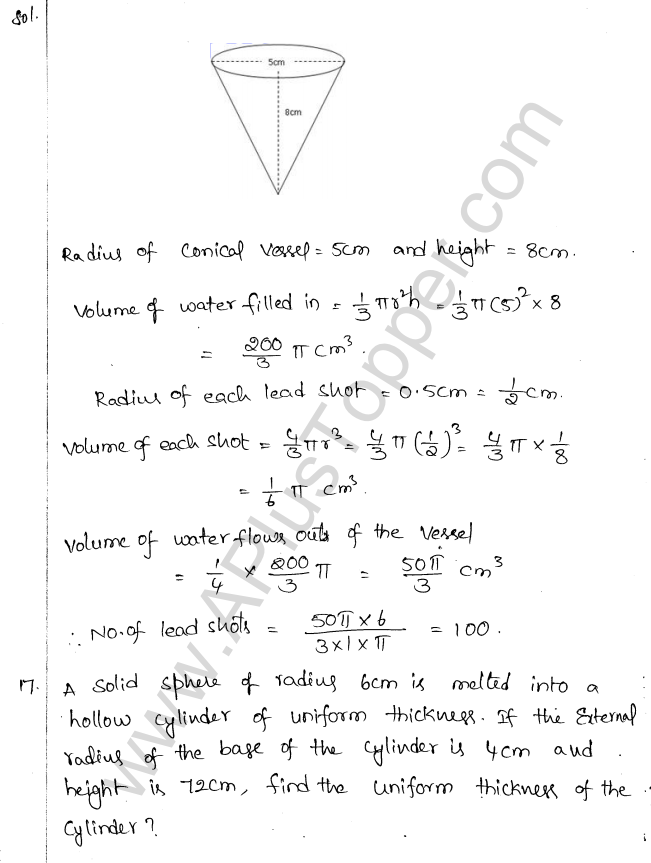 Sol.
5cm
8cm
Radius of conical vessel = 5cm and height = 8cm.
Volume of water filled in = 1/3 πr²h = 1/3 π(5)² × 8
= 200/3 π cm³.
Radius of each lead shot = 0.5cm = 1/2 cm.
Volume of each shot = 4/3 πr³ = 4/3 π (1/2)³ = 4/3 π × 1/8
= 1/6 π cm³.
Volume of water flows out of the vessel
= 1/4 × 200/3 π = 50π/3 cm³
∴ No. of lead shots = 50π × 6 / 3×1×π = 100.
17. A solid sphere of radius 6cm is melted into a
hollow cylinder of uniform thickness. If the External
radius of the base of the cylinder is 4cm and
height is 72cm, find the uniform thickness of the
cylinder?
www.APlusTopper.com